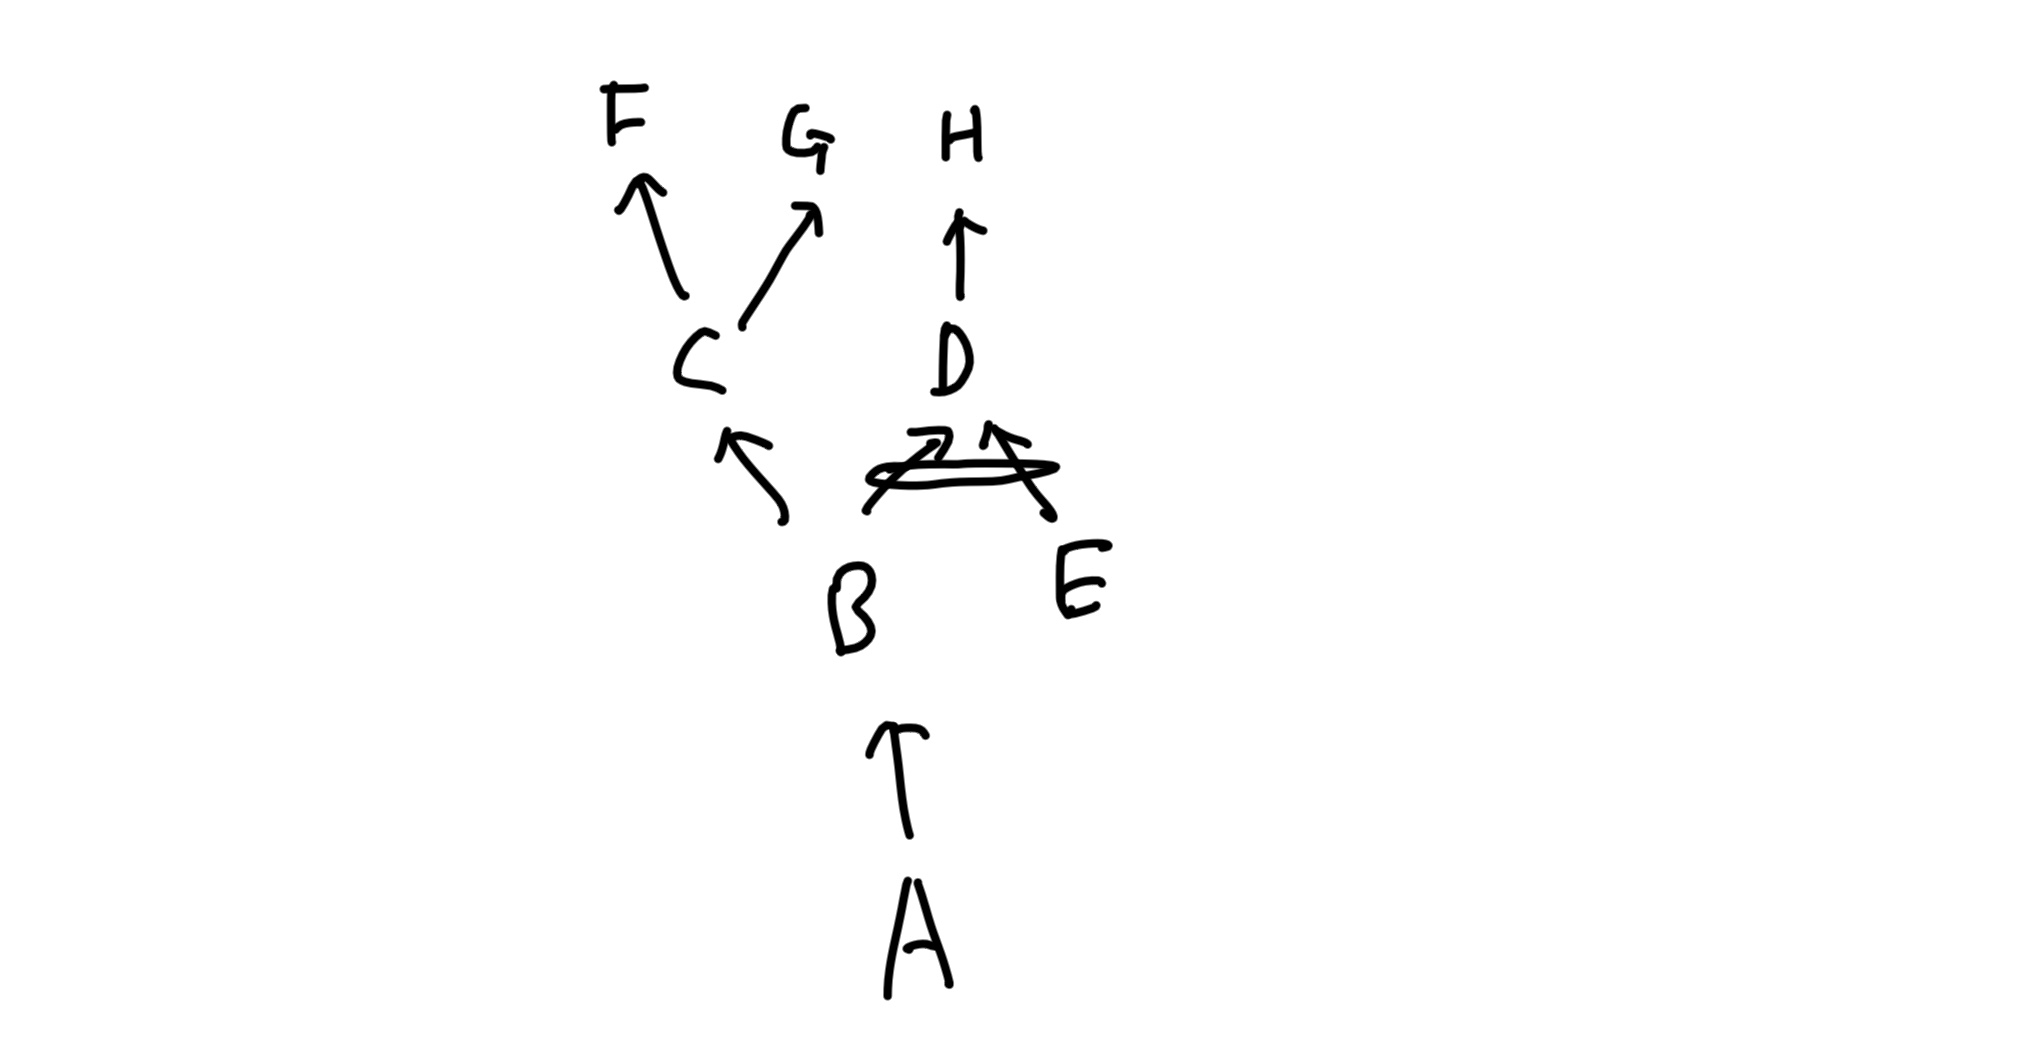 F G H
C D
B E
A